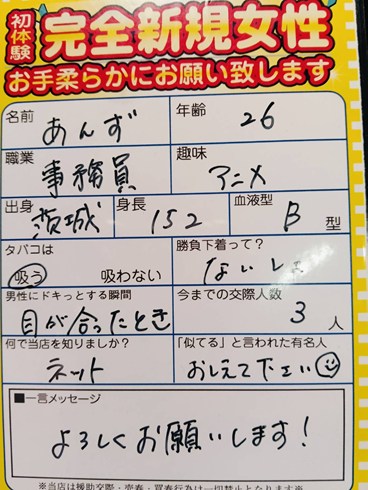 初体験
完全新規女性
お手柔らかにお願い致します
名前 あんず
年齢 26
職業 事務員
趣味 アニメ
出身 茨城
身長 152
血液型 B 型
タバコは
吸う 吸わない
勝負下着って?
ないしょ
男性にドキっとする瞬間
目が合ったとき
今までの交際人数
3人
何で当店を知りましたか?
ネット
「似てる」と言われた有名人
おしえて下さい
■一言メッセージ
よろしくお願いします!
※当店は援助交際・売春・買春行為は一切禁止となります※